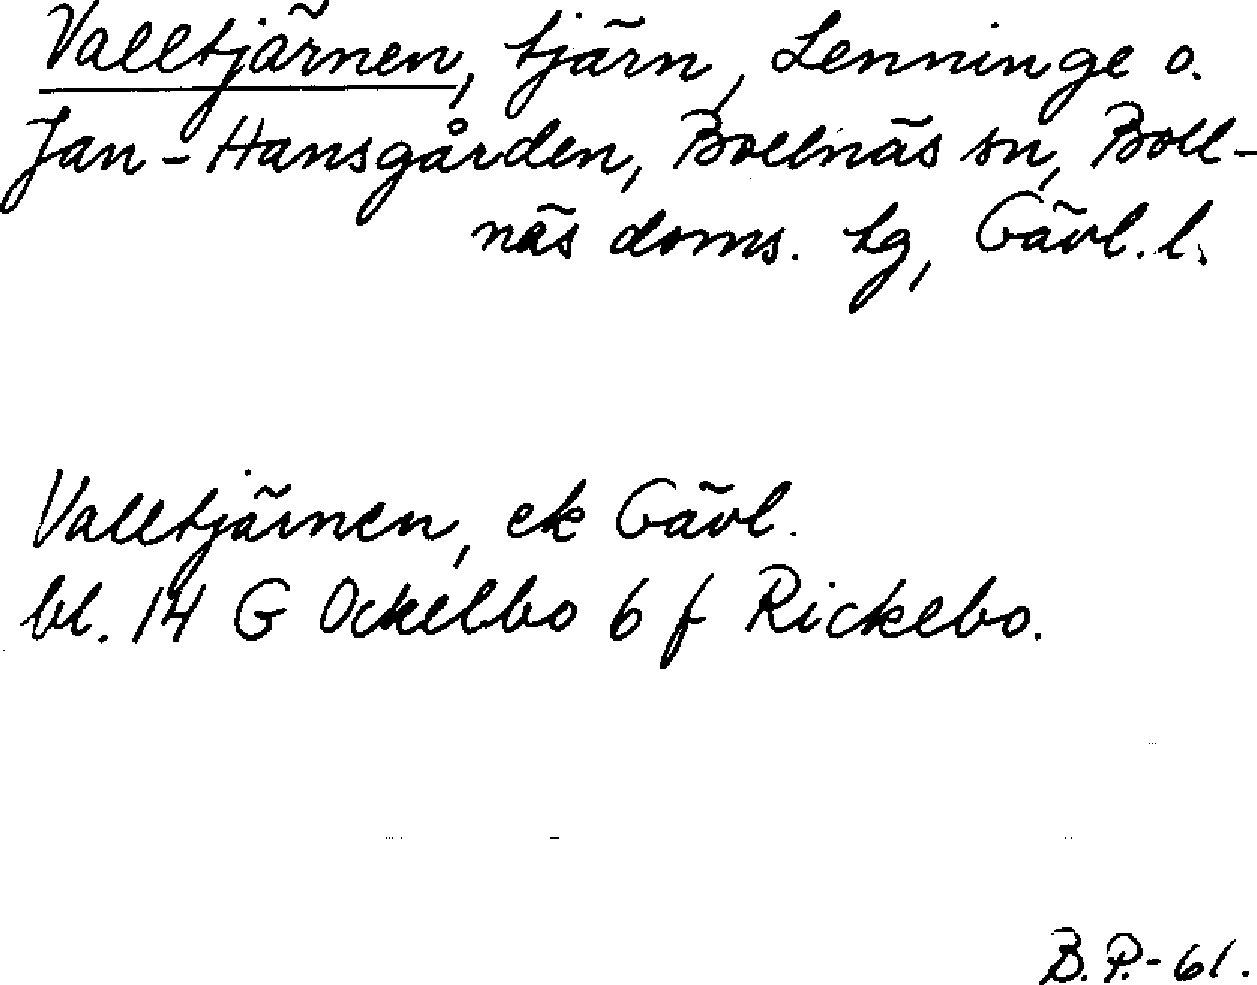 Valltjärnen, tjärn, Lenninge o.
Jan-Hansgården, Bollnäs sn, Boll-
näs doms. tg, Gävl. l.
Valltjärnen, ek Gävl.
bl. 14 G Ockelbo 6 f Rickebo.
B.P.-61.